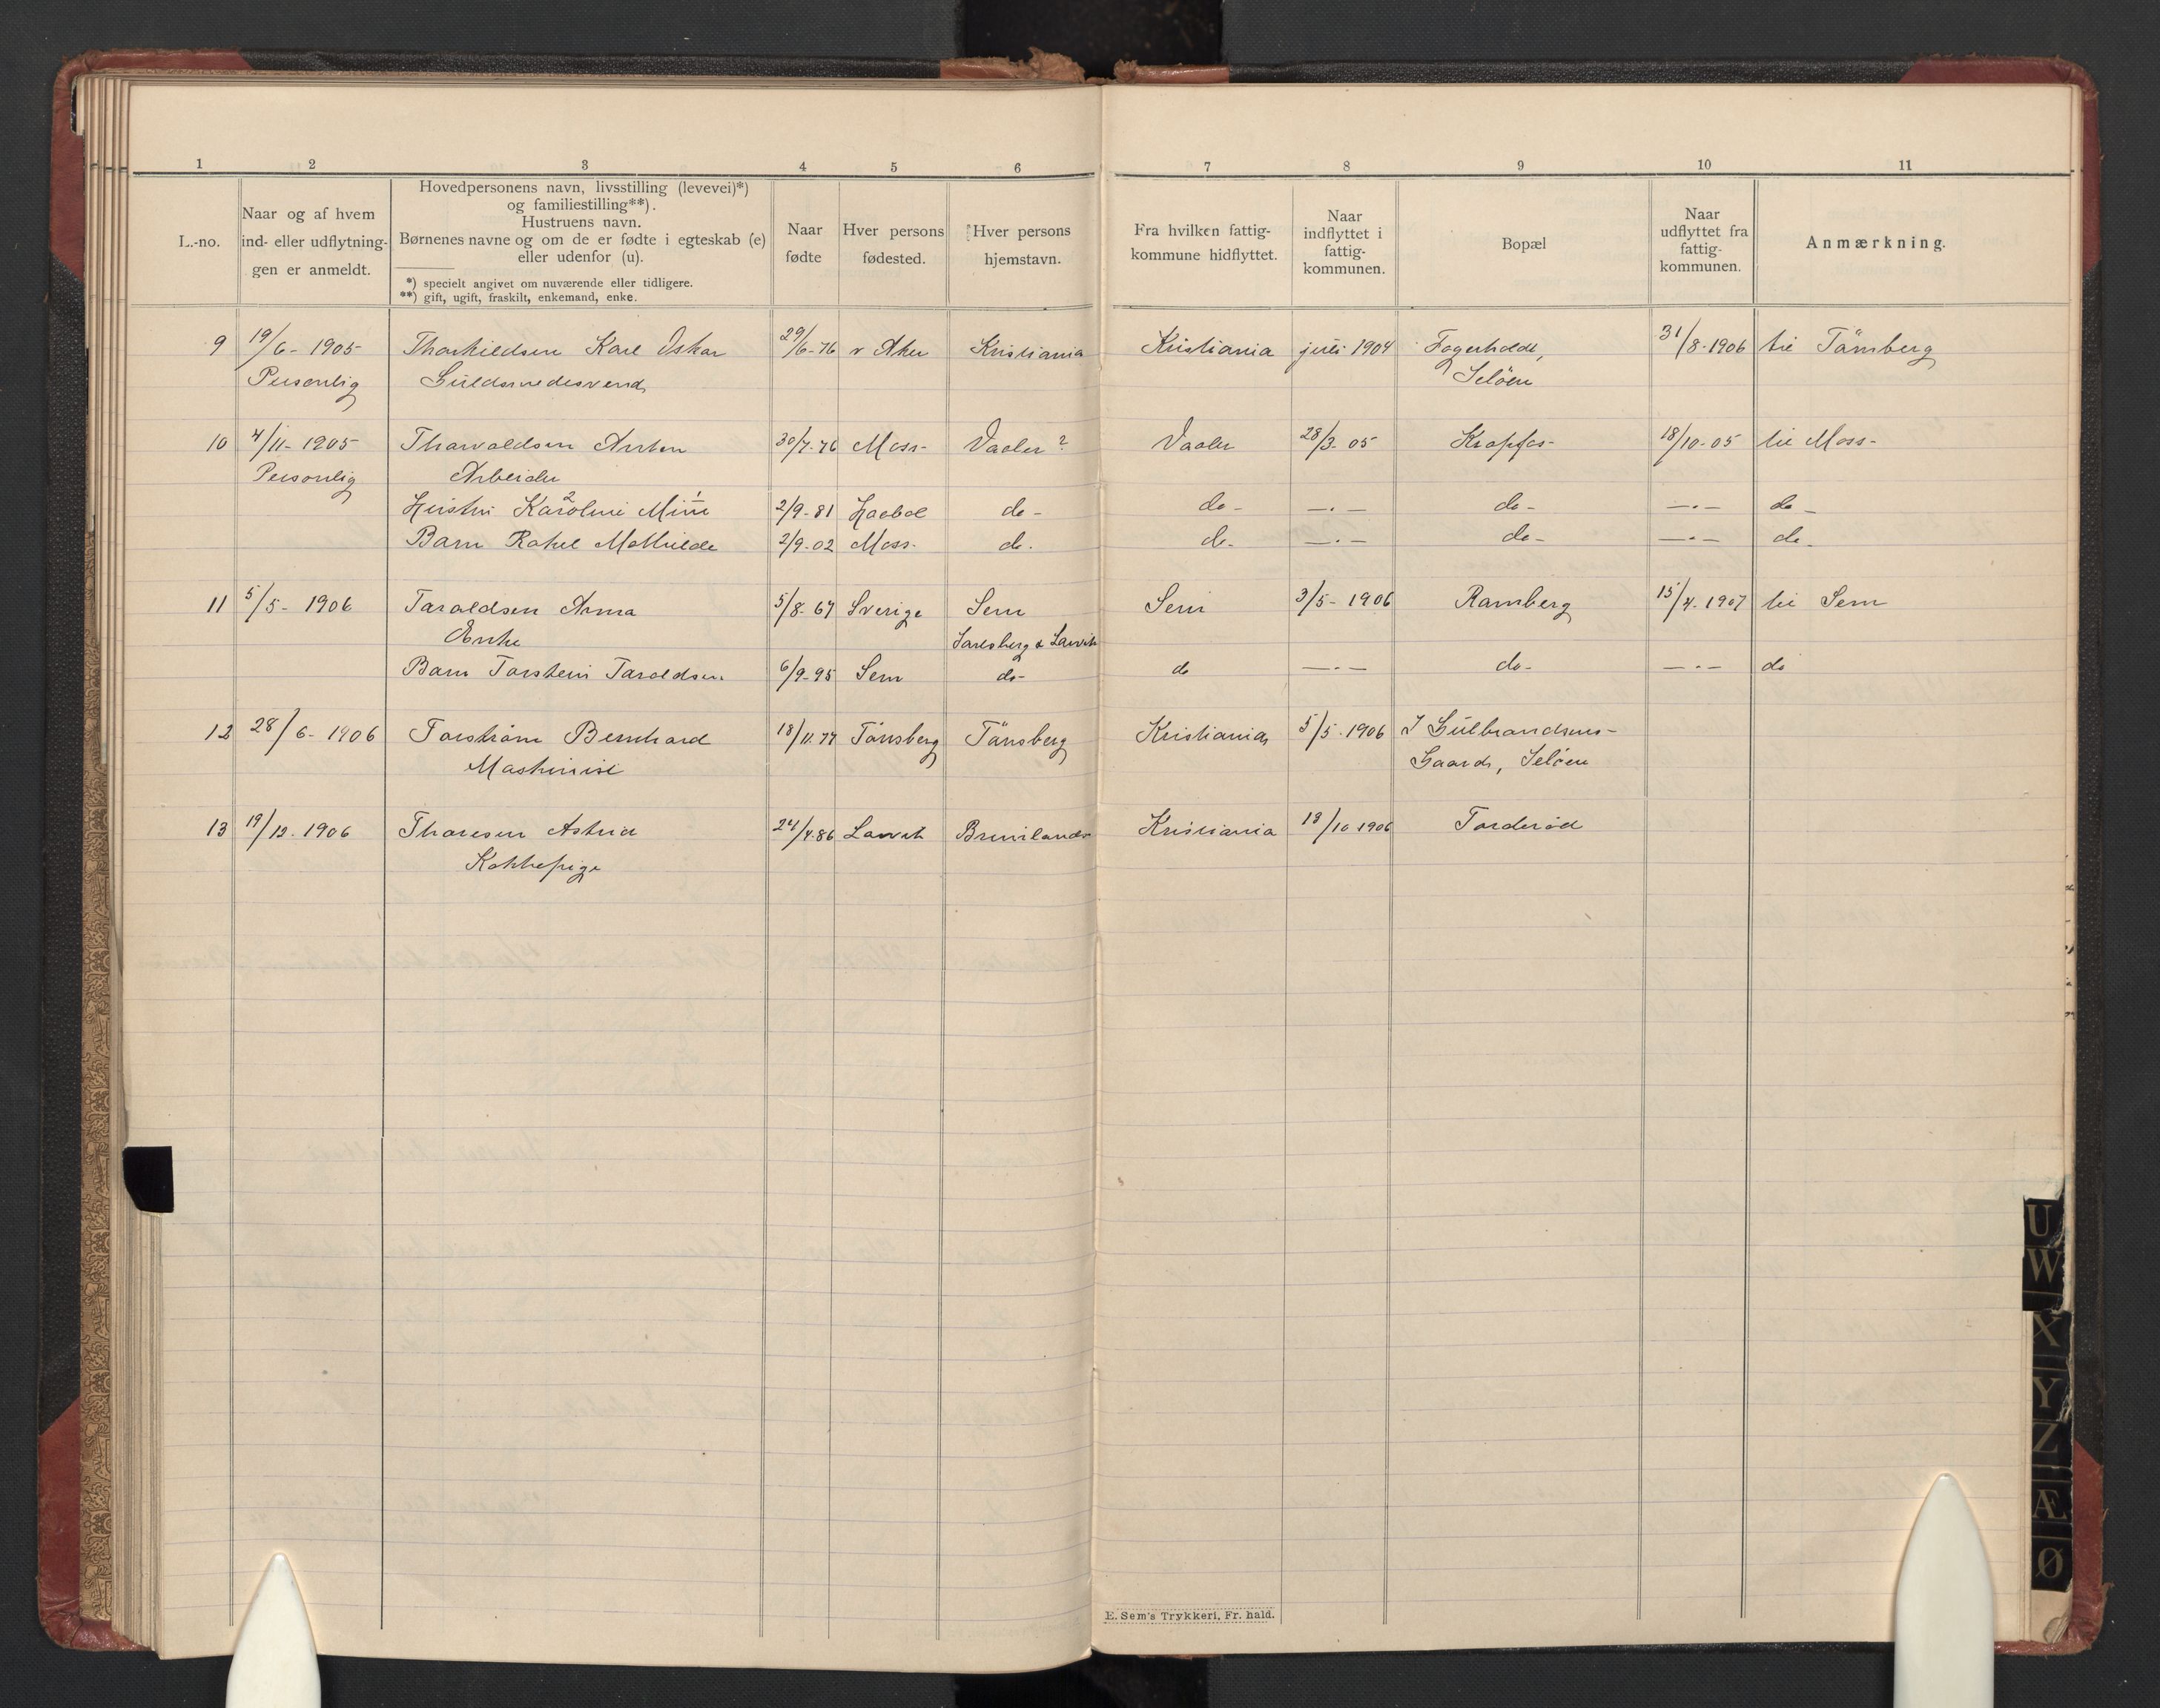 1 2 3 4 5 6 7 8 9 10 11
L.-no.
Naar og af hvem
ind- eller udflytnin-
gen er anmeldt.
Hovedpersonens navn, livsstilling (levevei)*)
og familiestilling**).
Hustruens navn.
Børnenes navne og om de er fødte i egteskab (e)
eller udenfor (u).
*) specielt angivet om nuværende eller tidligere.
**) gift, ugift, fraskilt, enkemand, enke.
Naar
fødte
Hver persons
fødested.
Hver persons
hjemstavn.
Fra hvilken fattig-
kommune hidflyttet.
Naar
indflyttet i
fattig-
kommunen.
Bopæl
Naar
udflyttet fra
fattig-
kommunen.
Anmærkning.
9 19/6- 1905- Thorkildsen Karl Oskar 29/6-76 v Aker Kristiania Kristiania juli 1904 Fagerholdt, 31/8-1906 til Tønsberg
Personlig Guldsmedesvend Jeløen
10 4/11-1905- Thorvaldsen Anton 30/7-76 Moss- Vaaler? Vaaler 28/3-05 Kropfos- 18/10-05 til Moss-
Personlig Arbeider
Hustru Karoline 2 Mine 1 2/9-81 Haabøl do- do- —·— do- —·— do-
Barn Rakel Mathilde 2/9-02 Moss- do. do- —·— do- —·— do
11 5/5- 1906 Taraldsen Anna 5/8-67 Sverige Sem Sem 3/5-1906 Ramberg 15/4-1907 til Sem
Enke Jarlsberg & Larvik
Barn Torstein Taraldsen 6/9-95 Sem do- do —·— do- —·— do
12 28/6- 1906 Torstrøm Bernhard 18/11.77 Tønsberg Tønsberg Kristiania 5/5-1906 I Gulbrandsens-
Maskinist Gaard, Jeløen
13 19/12.1906 Thoresen Astrid 24/4.86 Larvik Brunlandes Kristiania 19/10 1906 Torderød
Kokkepige
U
W
X
Y
Z
Æ
Ø
E. Sem's Trykkeri, Fr. hald.